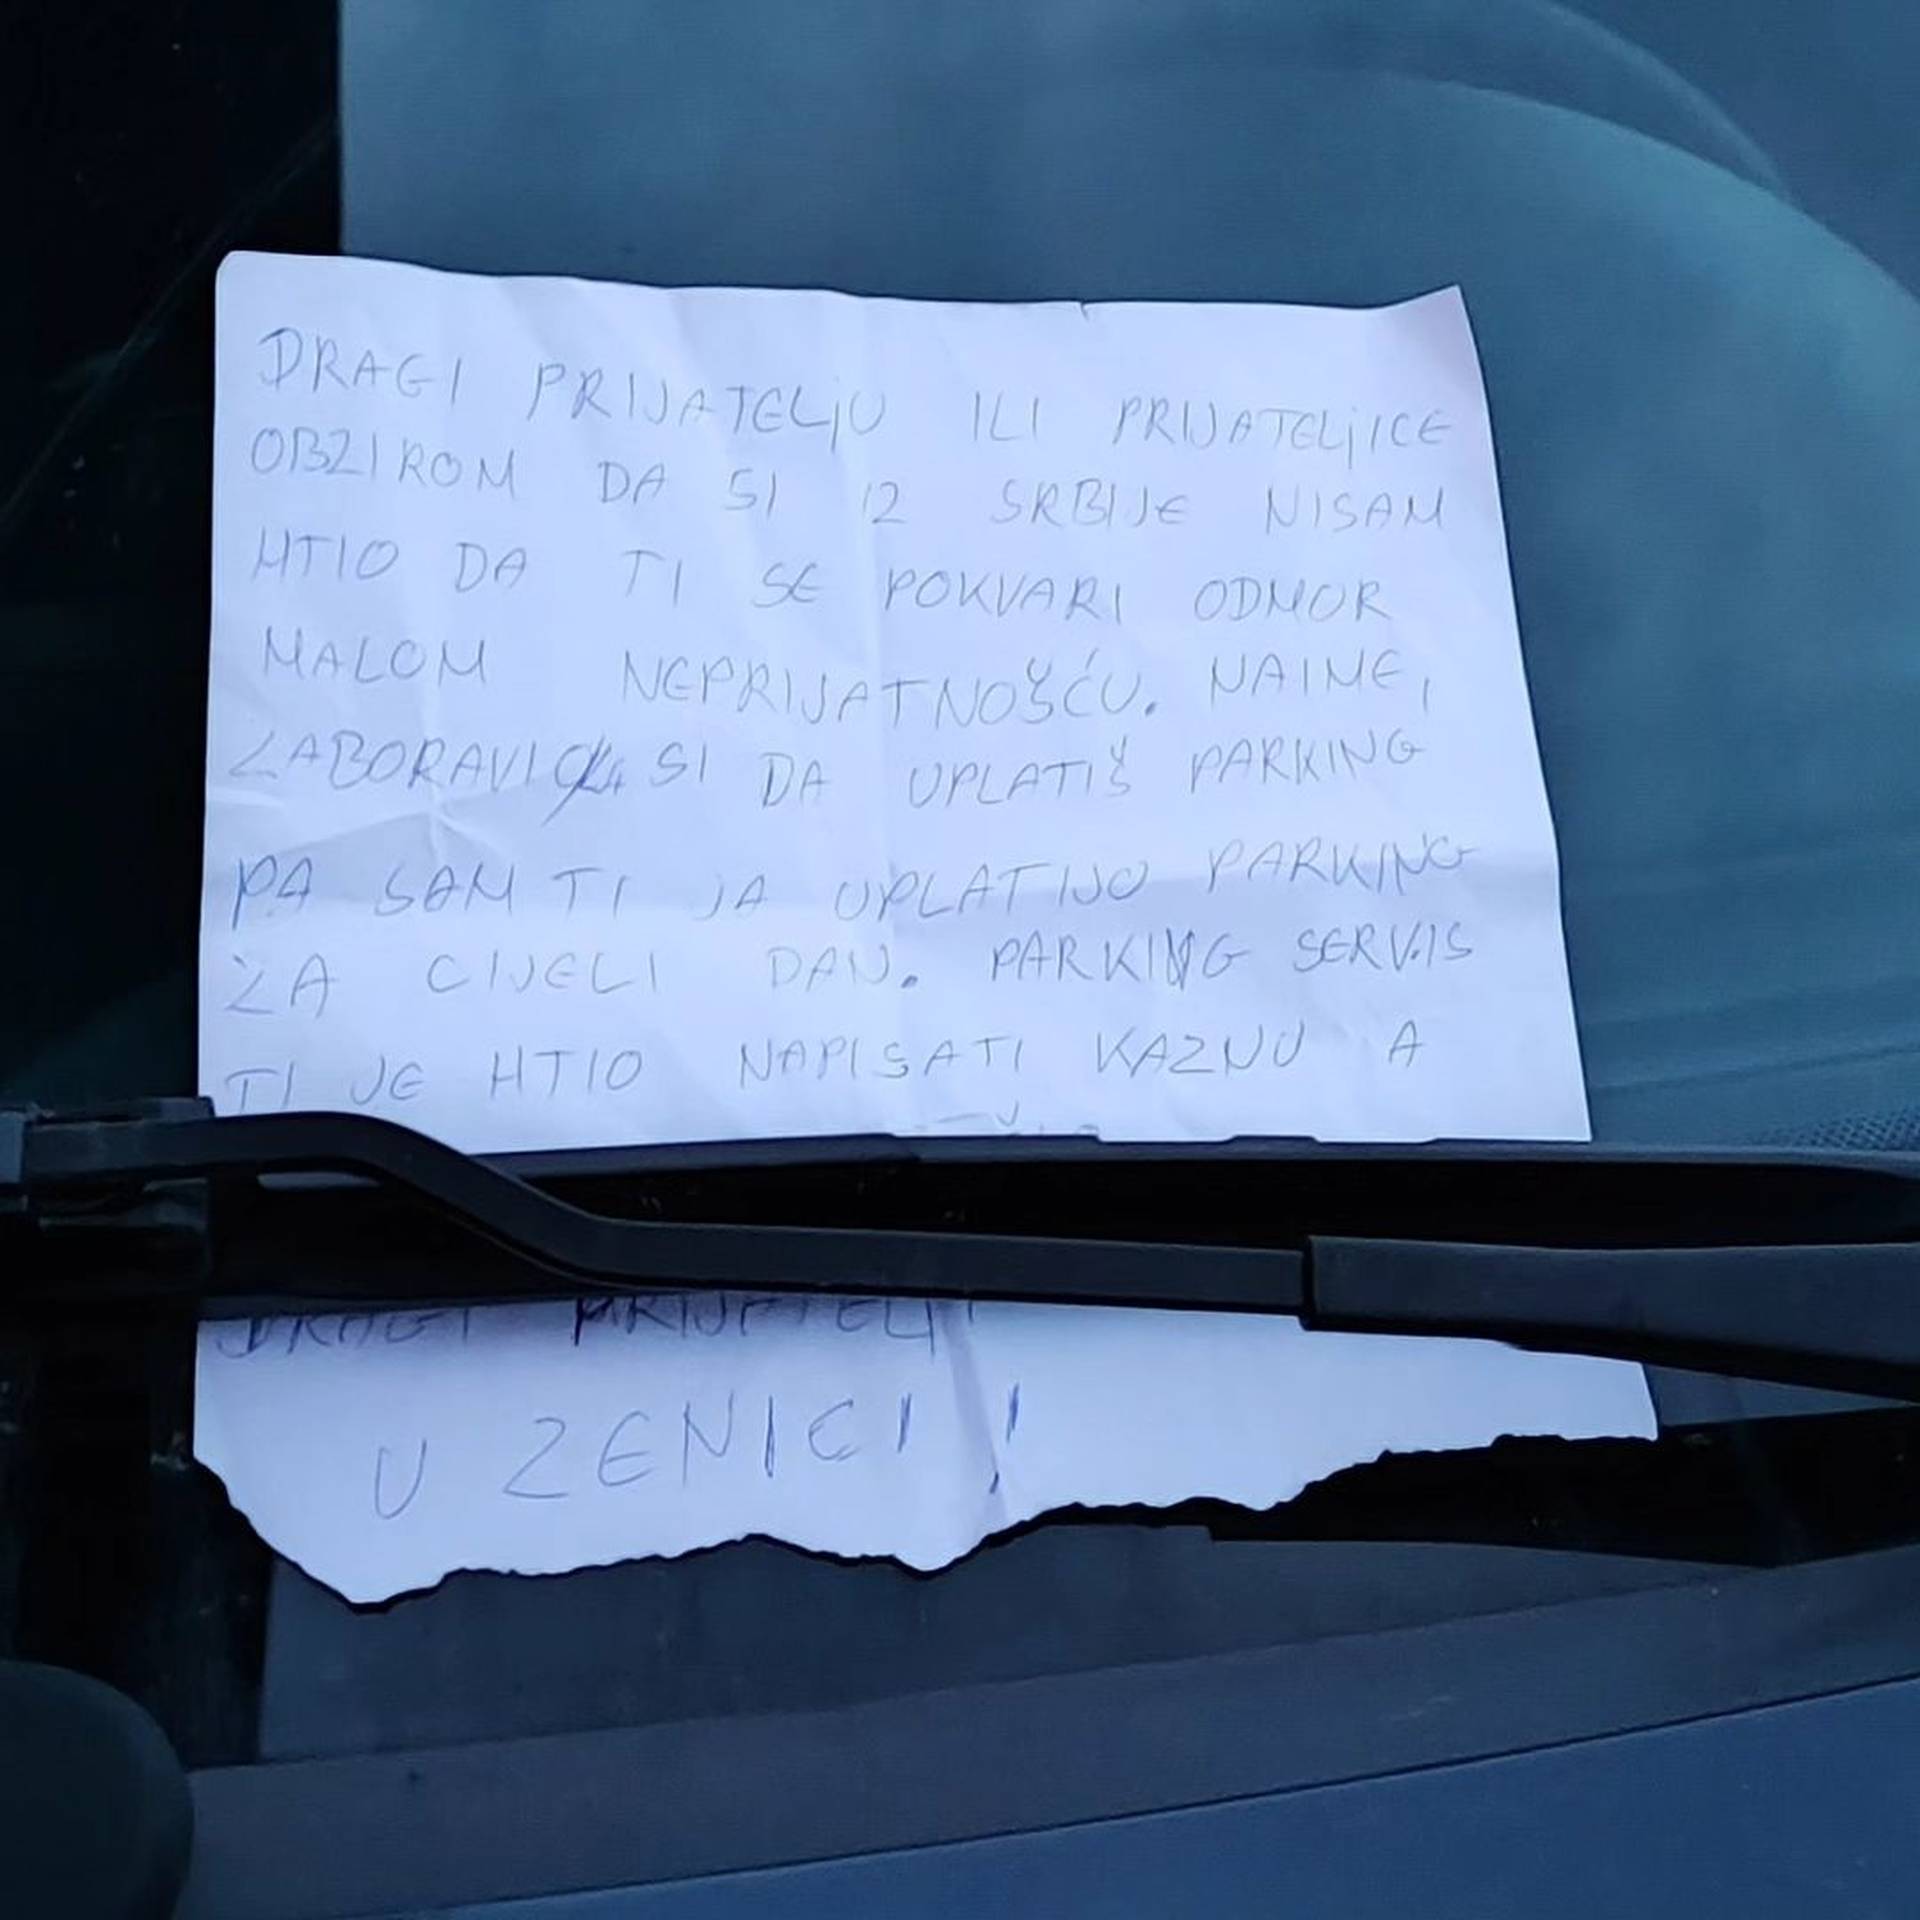 DRAGI PRIJATELjU ILI PRIJATELjICE
OBZIROM DA SI IZ SRBIJE NISAM
HTIO DA TI SE POKVARI ODMOR
MALOM NEPRIJATNOŠĆU. NAIME,
ZABORAVIO/LA SI DA UPLATIŠ PARKING
PA SAM TI JA UPLATIJO PARKING
ZA CIJELI DAN. PARKING SERVIS
TI JE HTIO NAPISATI KAZNU A
DRAGI PRIJATELJ
U ZENICI!